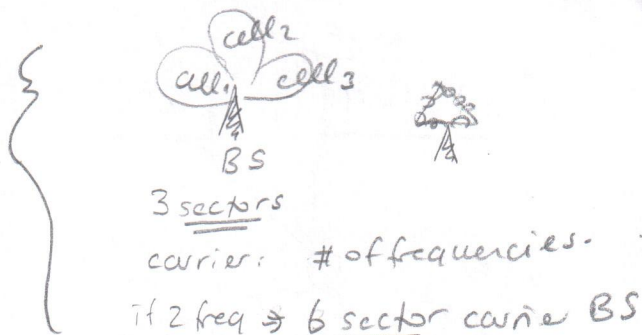 cell2
cell1 cell3
BS
3 sectors
carrier: # of frequencies.
if 2 freq ⇒ 6 sector carrier BS